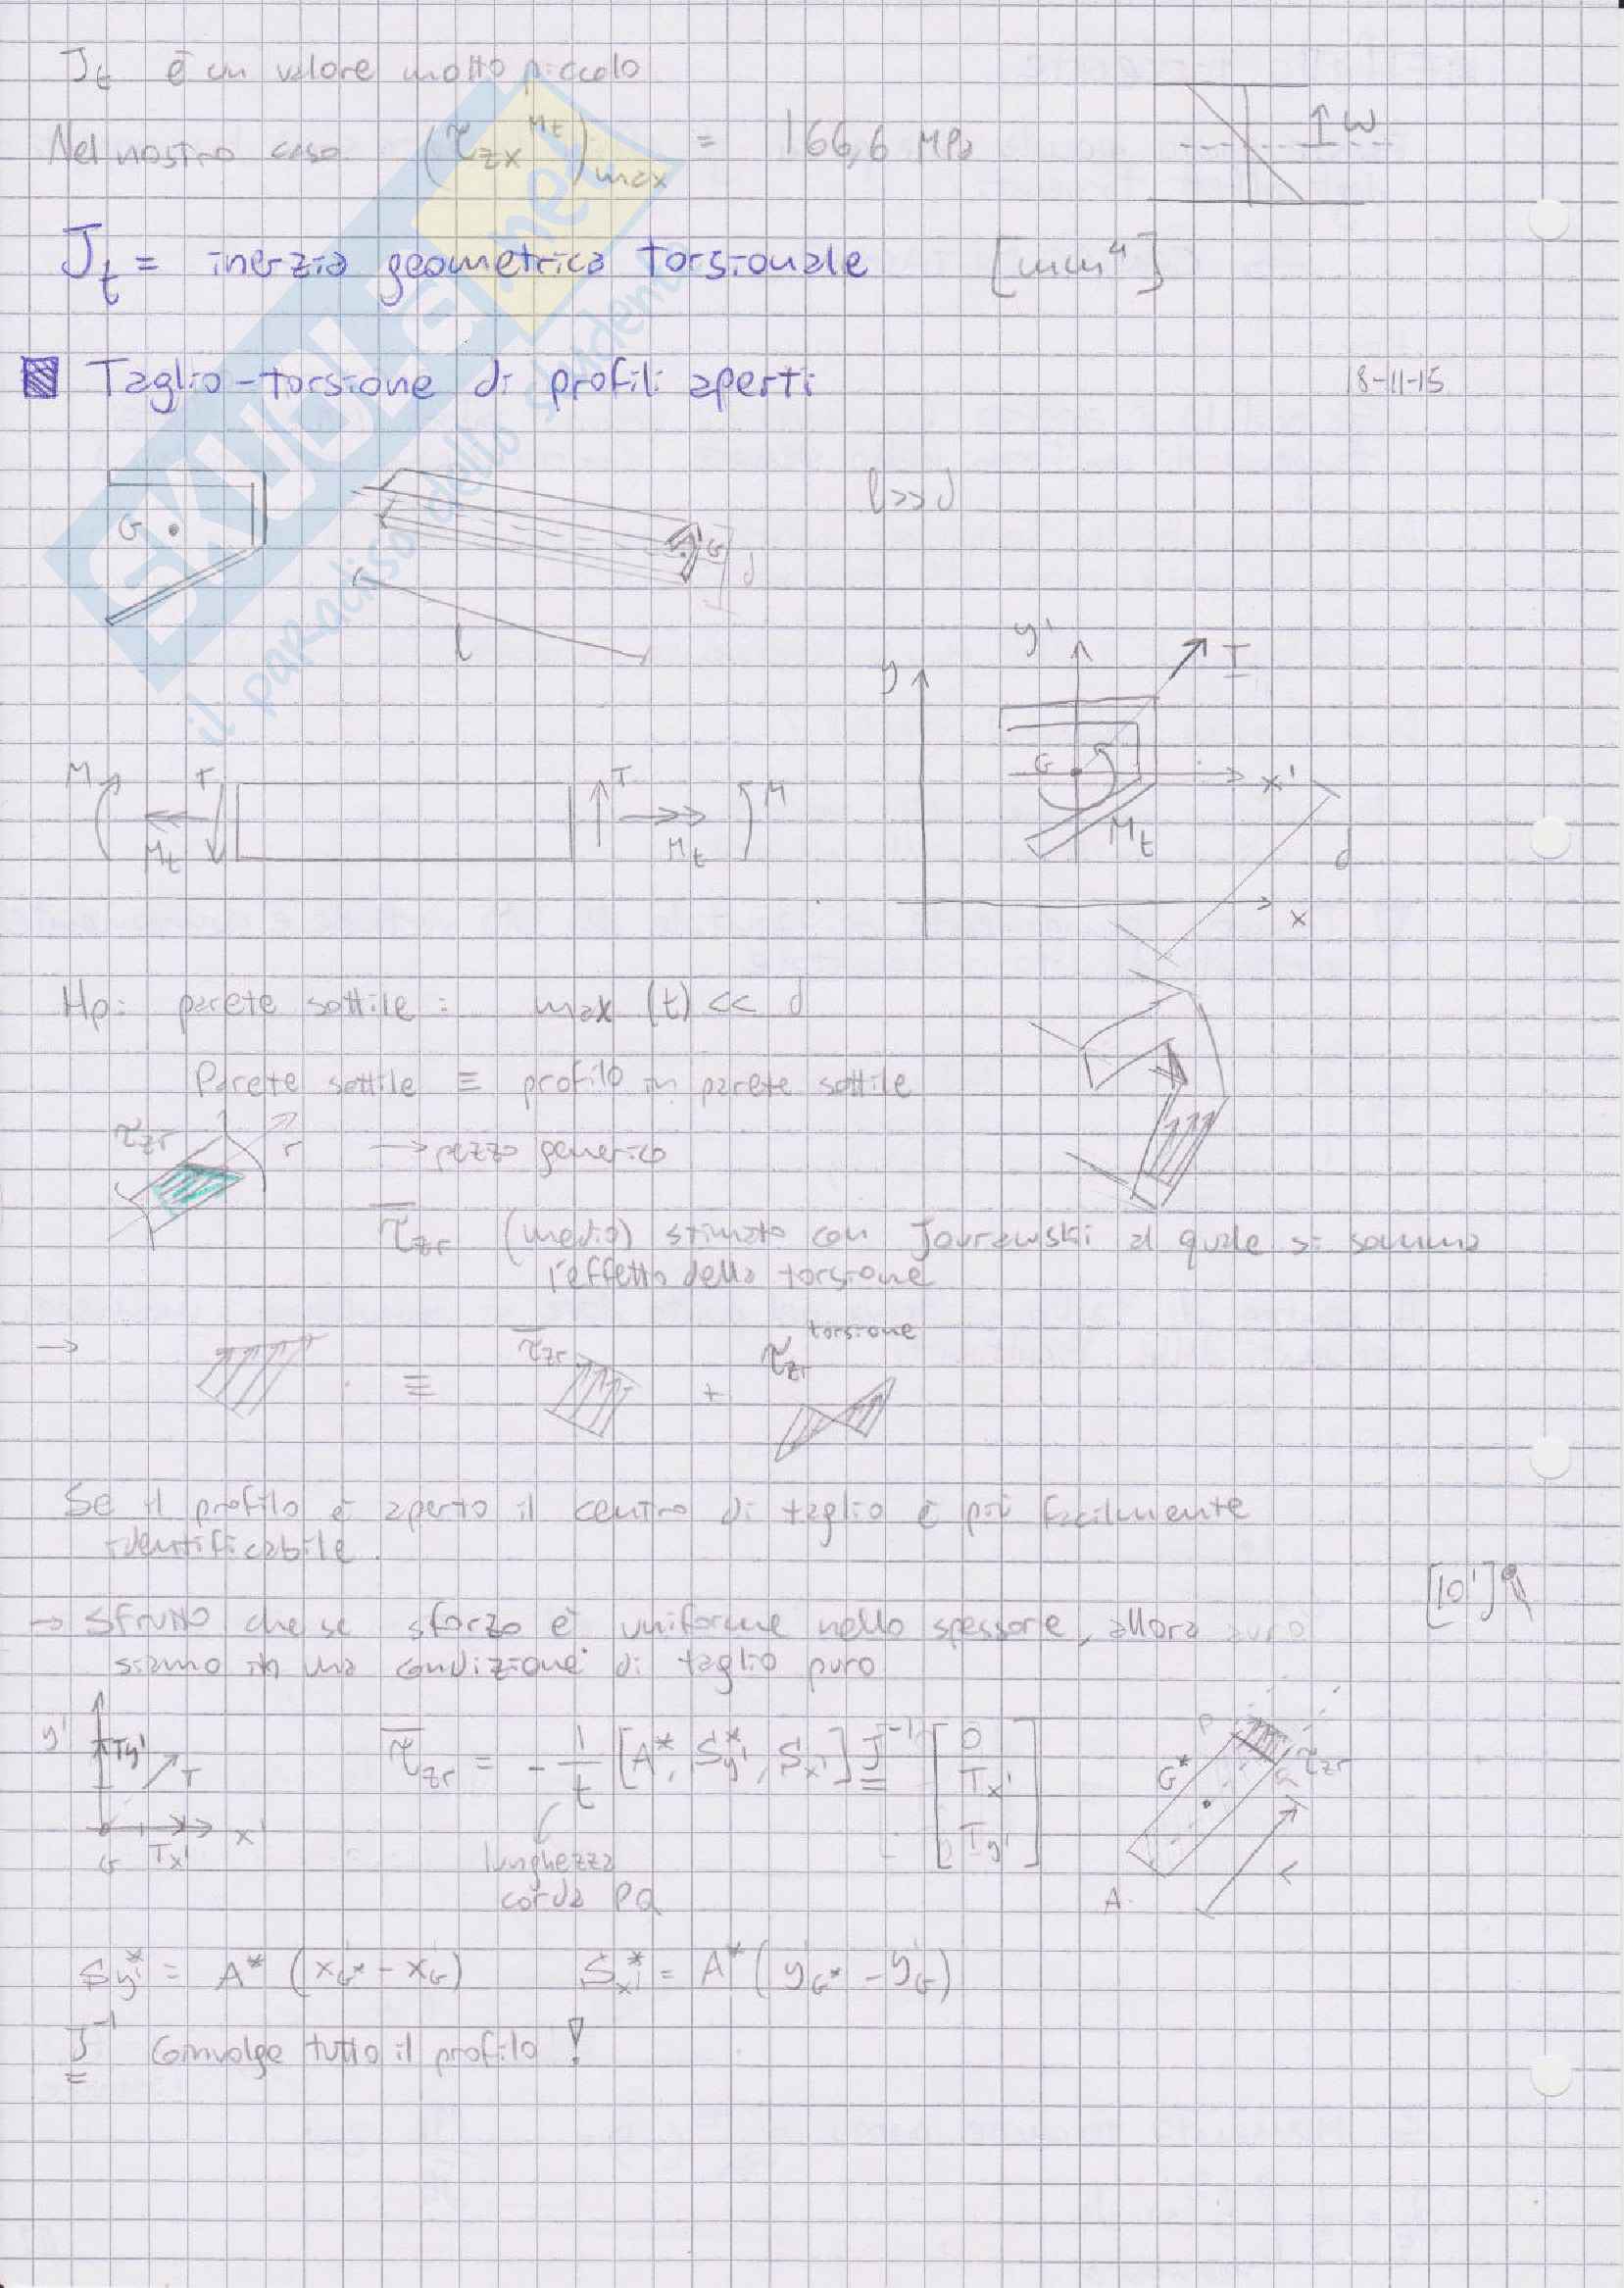 J_t è un valore molto piccolo
Nel nostro caso (τ_zx^Mt)_max = 166,6 MPa
↑ω
J_t = inerzia geometrica torsionale [mm⁴]
Taglio-torsione di profili aperti 18-11-15
G
l
G
d
l>>d
y' T
y
G x'
M_t
d
x
M T T M
M_t M_t
Hp: parete sottile: max (t) << d
Parete sottile ≡ profilo in parete sottile
τ_zr r → pezzo generico
τ̄_zr (medio) stimato con Jourawski al quale si somma
l'effetto della torsione
→ ≡ τ̄_zr + τ_zr^torsione
Se il profilo è aperto il centro di taglio è più facilmente
identificabile.
[10']
→ Sfrutto che se sforzo è uniforme nello spessore, allora
siamo in una condizione di taglio puro
y' T_y' T
G T_x' x'
τ̄_zr = - 1/t [A*, S*_y', S_x'] J⁻¹ [0 T_x' T_y']
lunghezza
corda PQ
P
G* τ_zr
A
S*_y' = A* (x_G* - x_G) S*_x' = A* (y_G* - y_G)
J⁻¹ coinvolge tutto il profilo !
SKUOLA.net
il paradiso dello studente